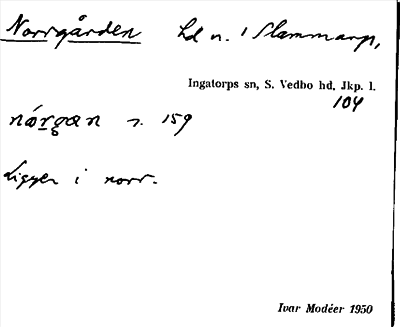 Norrgården hd n. 1 Slammarp,
Ingatorps sn, S. Vedbo hd, Jkp. l.
104
nórgan s. 159
Ligger i norr.
Ivar Modéer 1950